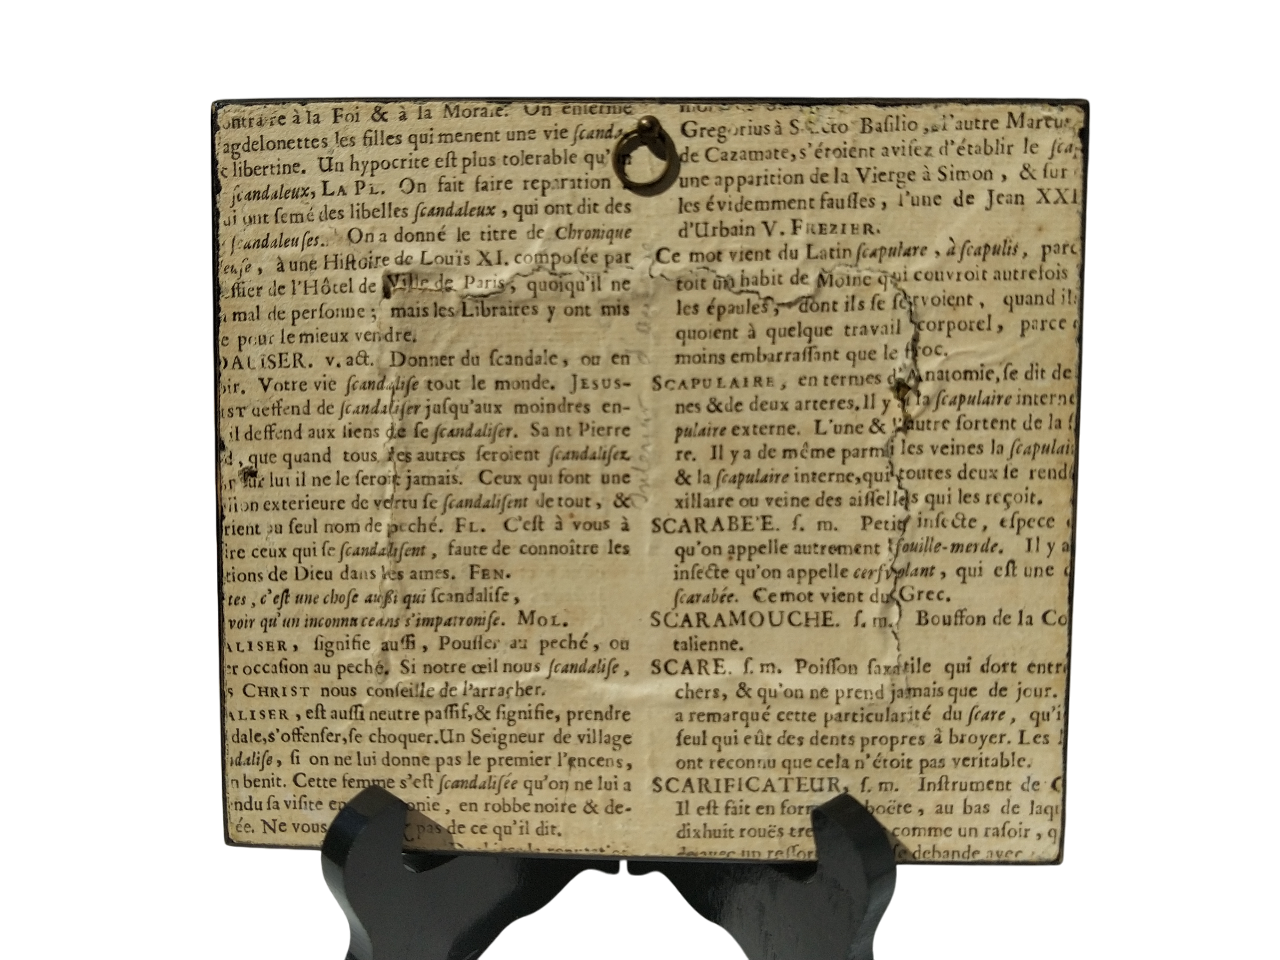 ontraire à la Foi & à la Morale. On enferme
agdelonettes les filles qui menent une vie ſcand
libertine. Un hypocrite eſt plus tolerable qu'
ſcandaleux, LA PL. On fait faire reparation
ont ſemé des libelles ſcandaleux, qui ont dit des
ſcandaleuſes. On a donné le titre de Chronique
euſe, à une Hiſtoire de Louïs XI. compoſée par
ffier de l'Hôtel de Ville de Paris, quoiqu'il ne
mal de perſonne; mais les Libraires y ont mis
pour le mieux vendre.
DALISER. v. act. Donner du ſcandale, ou en
ir. Votre vie ſcandaliſe tout le monde. JESUS-
IST deffend de ſcandaliſer juſqu'aux moindres en-
il deffend aux liens de ſe ſcandaliſer. Saint Pierre
, que quand tous les autres ſeroient ſcandaliſez
lui il ne le ſeroit jamais. Ceux qui font une
ion exterieure de vertu ſe ſcandaliſent de tout, &
rient au ſeul nom de peché. FL. C'eſt à vous à
ire ceux qui ſe ſcandaliſent, faute de connoître les
tions de Dieu dans les ames. FEN.
tes, c'eſt une choſe auſſi qui ſcandaliſe,
voir qu'un inconnu ceans s'impatroniſe. MOL.
ALISER, ſignifie auſſi, Pouſſer au peché, ou
er occaſion au peché. Si notre œil nous ſcandaliſe,
S CHRIST nous conſeille de l'arracher.
ALISER, eſt auſſi neutre paſſif, & ſignifie, prendre
dale, s'offenſer, ſe choquer. Un Seigneur de village
ndaliſe, ſi on ne lui donne pas le premier l'encens,
n benit. Cette femme s'eſt ſcandaliſée qu'on ne lui a
ndu ſa viſite en onie, en robbe noire & de-
ée. Ne vous pas de ce qu'il dit.
Gregorius à S. Basilio, l'autre Marcus
de Cazamate, s'étoient aviſez d'établir le ſca
une apparition de la Vierge à Simon, & ſur
les évidemment fauſſes, l'une de Jean XXI
d'Urbain V. FREZIER.
Ce mot vient du Latin ſcapulare, à ſcapulis, parc
toit un habit de Moine qui couvroit autrefois
les épaules, dont ils ſe ſervoient, quand il
quoient à quelque travail corporel, parce
moins embarraſſant que le froc.
SCAPULAIRE, en termes d'Anatomie, ſe dit de
nes & de deux arteres. Il y a la ſcapulaire interne
pulaire externe. L'une & l'autre ſortent de la ſ
re. Il y a de même parmi les veines la ſcapulai
& la ſcapulaire interne, qui toutes deux ſe rend
xillaire ou veine des aiſſelles qui les reçoit.
SCARABE'E. ſ. m. Petit inſecte, eſpece
qu'on appelle autrement fouille-merde. Il y a
inſecte qu'on appelle cerf volant, qui eſt une
ſcarabée. Ce mot vient du Grec.
SCARAMOUCHE. ſ. m. Bouffon de la Co
talienne.
SCARE. ſ. m. Poiſſon ſaxatile qui dort entre
chers, & qu'on ne prend jamais que de jour.
a remarqué cette particularité du ſcare, qu'i
ſeul qui eût des dents propres à broyer. Les
ont reconnu que cela n'étoit pas veritable.
SCARIFICATEUR, ſ. m. Inſtrument de C
Il eſt fait en forme boëte, au bas de laqu
dixhuit rouës comme un raſoir, q
ſe debande avec